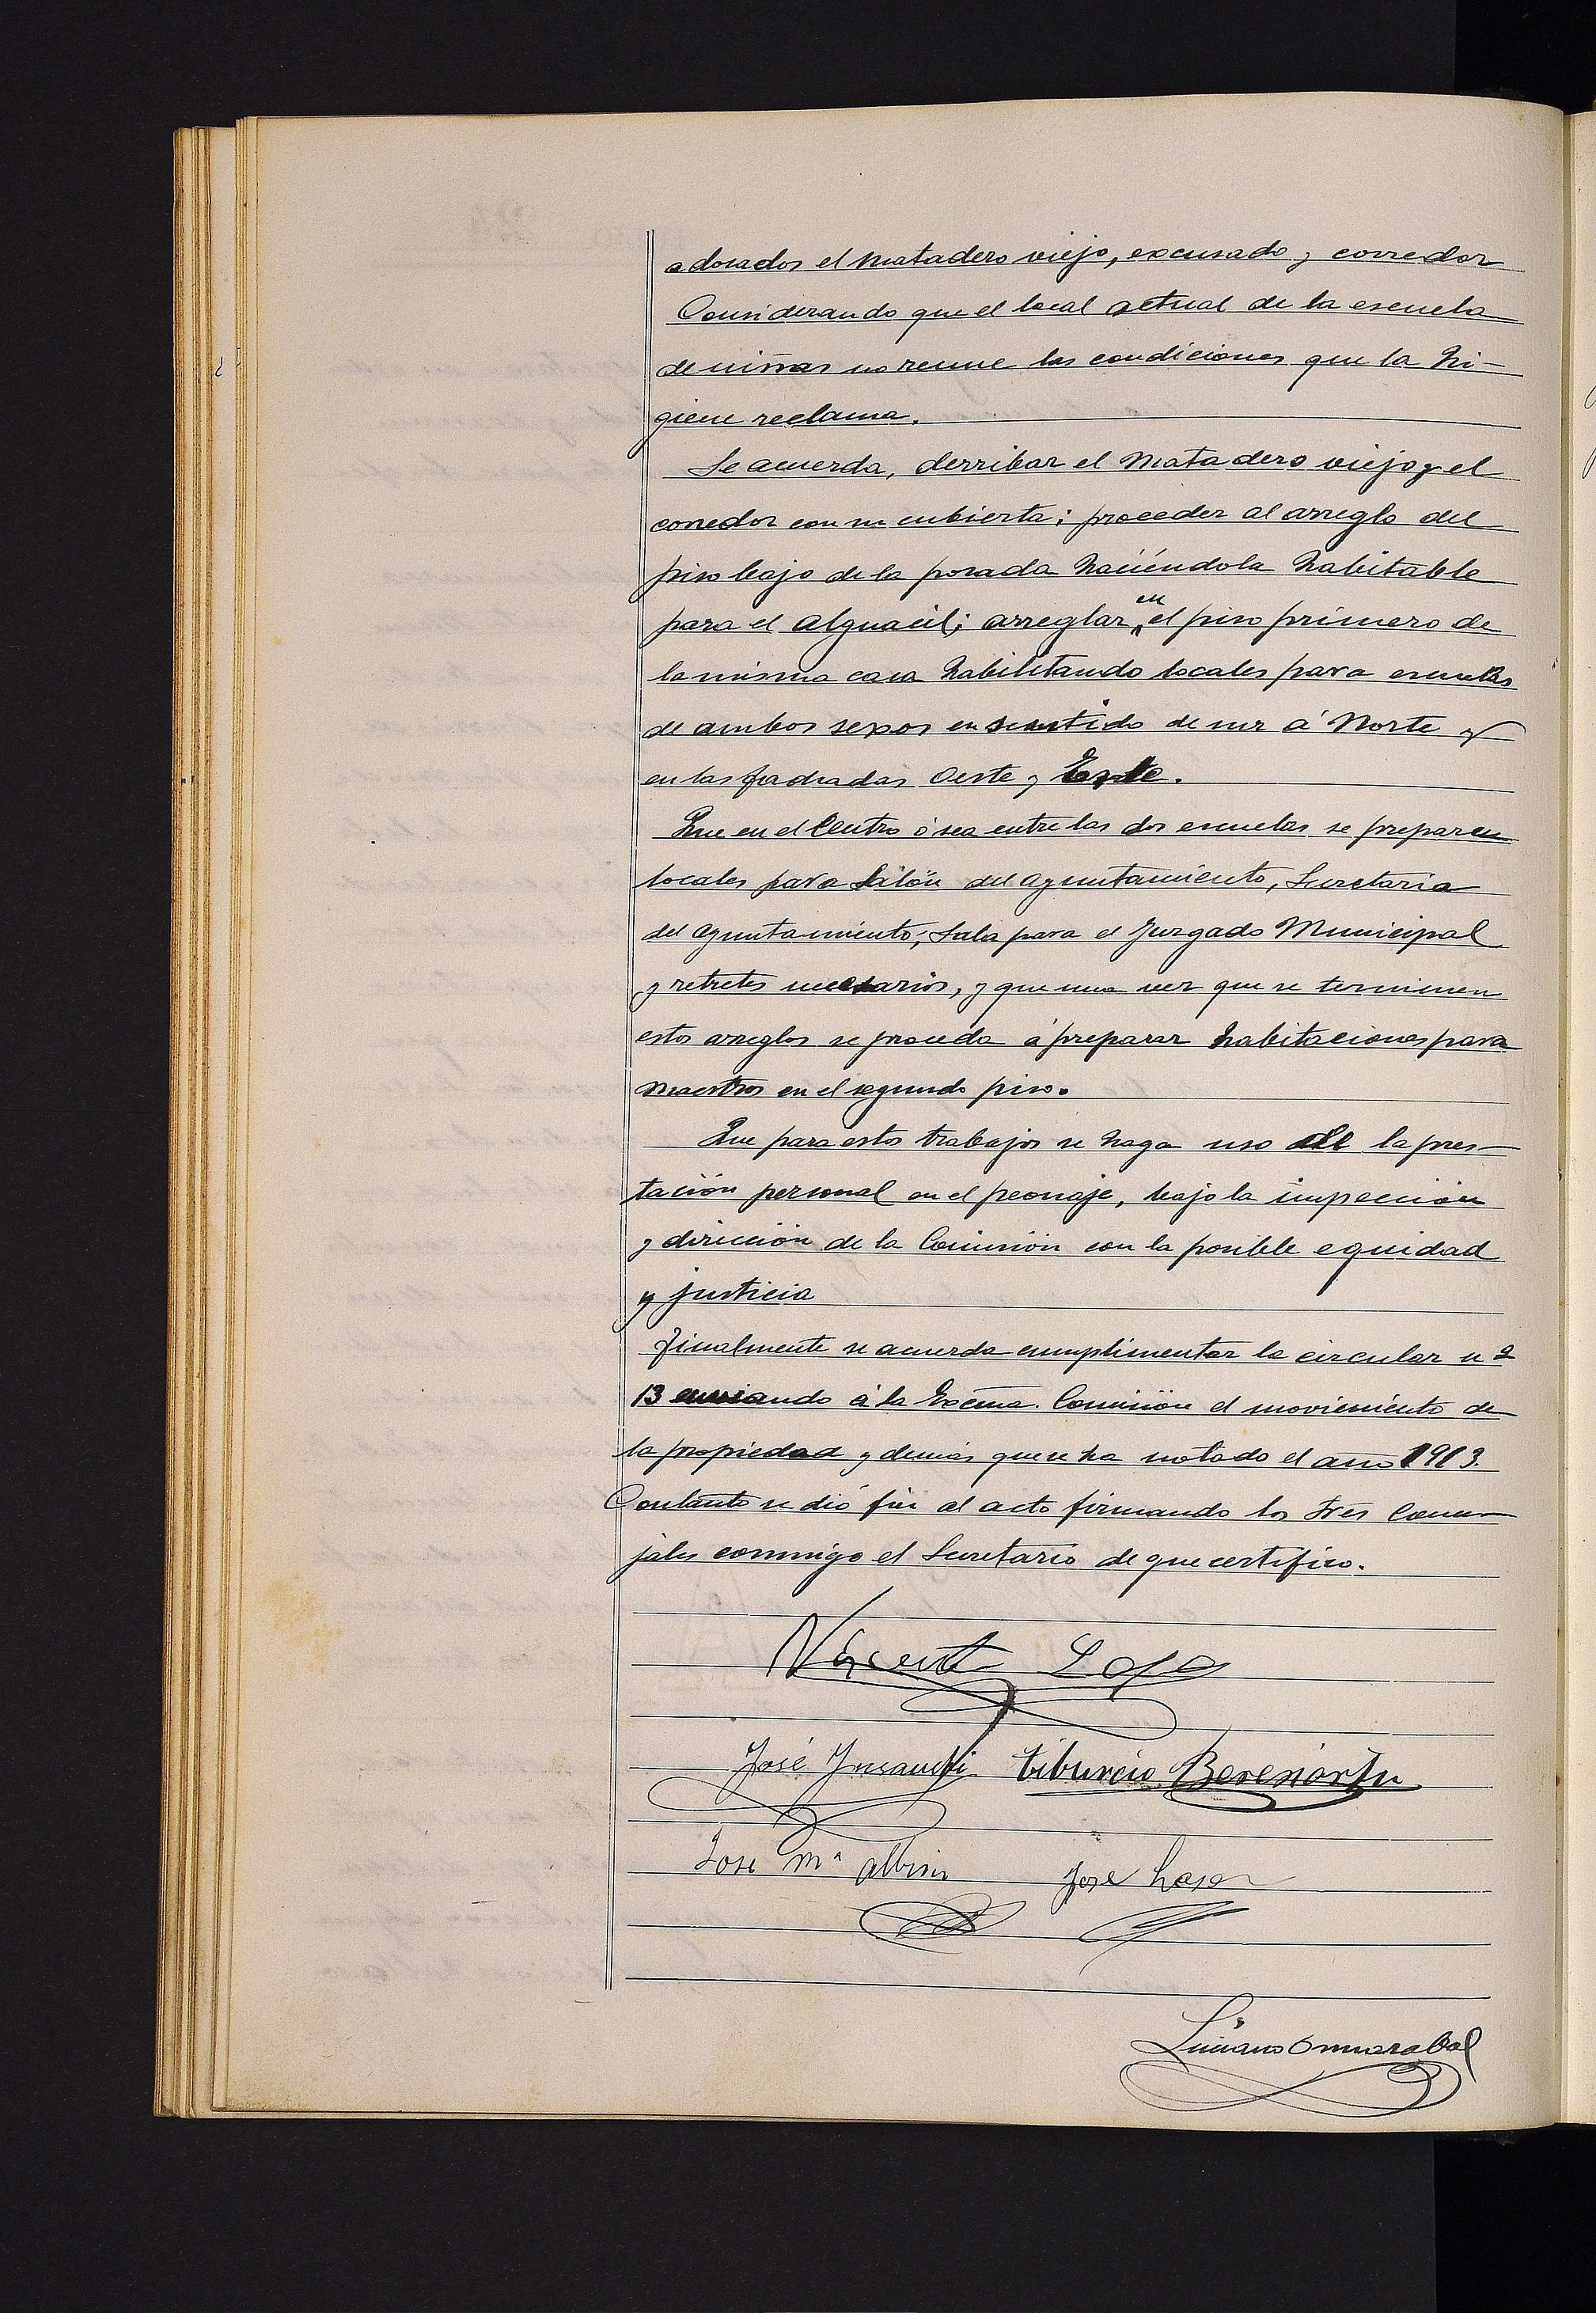 adosados el matadero viejo, excusado y corredor
Considerando que el local actual de la escuela
de niñas no reune las condiciones que la hi-
giene reclama.
Se acuerda, derribar el Matadero viejo y el
corredor con su cubierta; proceder al arreglo del
piso bajo de la posada haciéndola habitable
para el Alguacil; arreglar en el piso primero de
la misma casa habilitando locales para escuelas
de ambos sexos en sentido de sur á Norte y
en las fachadas Oeste y Este.
Que en el Centro ó sea entre las dos escuelas se preparen
locales para Salón del Ayuntamiento, Secretaria
del Ayuntamiento, Sala para el Juzgado Municipal
y retretes necesarios, y que una vez que se terminen
estos arreglos se proceda á preparar habitaciones para
Maestros en el segundo piso.
Que para estos trabajos se haga uso de la pres-
tación personal en el peonaje, bajo la inspección
y dirección de la Comisión con la posible equidad
y justicia
Finalmente se acuerda cumplimentar la circular nº
13 enviando á la Excma. Comisión el movimiento de
la propiedad y demás que se ha notado el año 1913.
Con tanto se dió fin al acto firmando los Sres Conce-
jales conmigo el Secretario de que certifico.
Vicente Lasa
José Tiburcio Berexiartu
Jose Mª Albisu Jose Lasa
Luciano Ormazabal